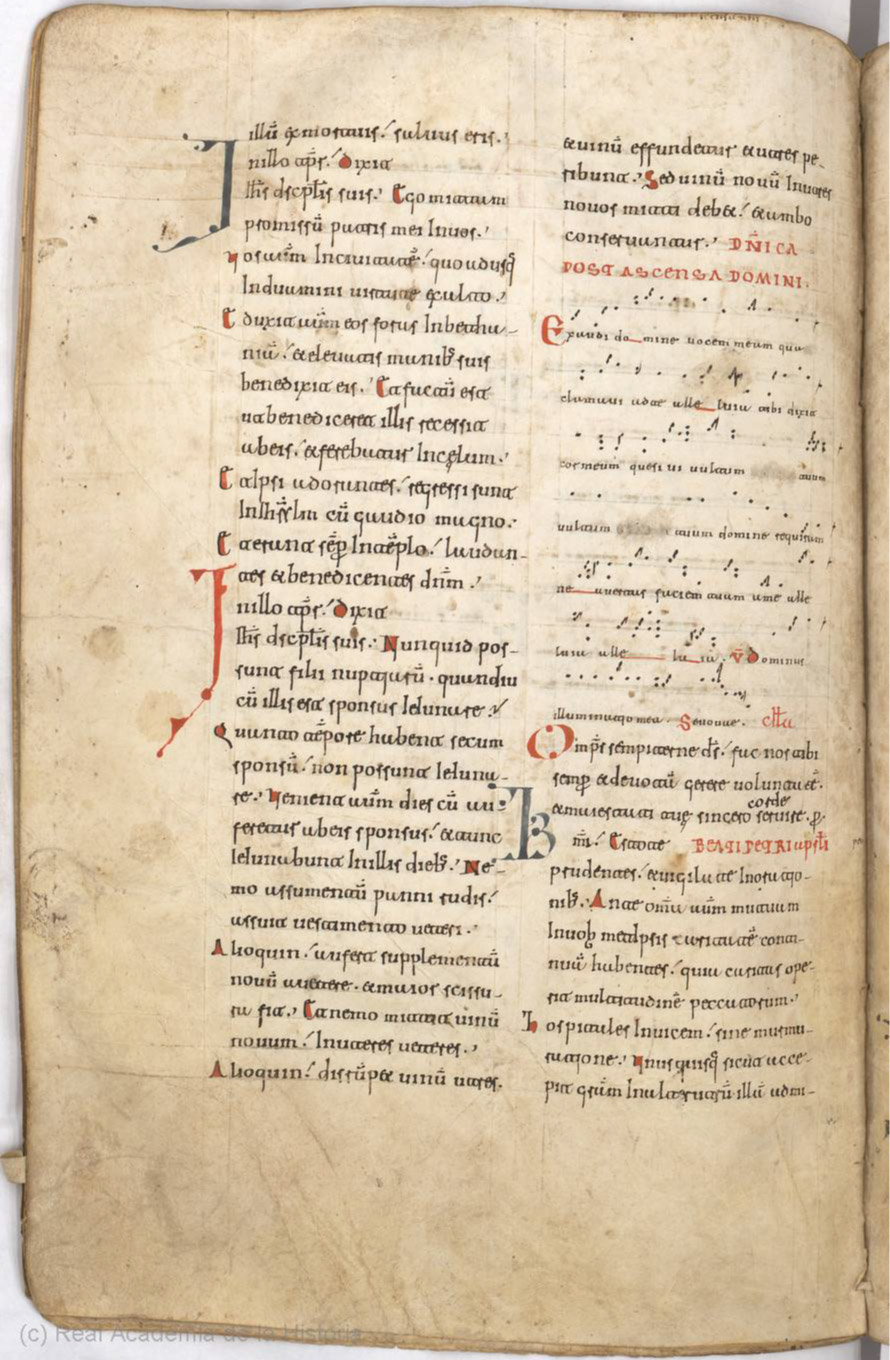 illū ex mortuis. saluus eris.
In illo tp̄r. Dixit
Ihs discplīs suis. Ego mittam
promissū patris mei In uos.
Uos autm̄ In ciuitatē. quo udusq
Induamini uirtutē ex alto.
Eduxit autm̄ eos foras In betha-
niā. et eleuatis manib; suis
benedixit eis. Et factū est
ut benediceret illis recessit
ab eis. et ferebatur In celum.
Et ipsi adorantes. regressi sunt
In Ihrslm cū gaudio magno.
Et erant semp̄ In templo. laudan-
tes et benedicentes dnm̄.
In illo tp̄r. Dixit
Ihs discplīs suis. Nunquid pos-
sunt filii nuptiarū. quandiu
cū illis est sponsus Ieiunare.
Quanto tēpore habent secum
sponsū. non possunt Ieiuna-
re. Uenient autm̄ dies cū au-
feretur ab eis sponsus. et tunc
Ieiunabunt In illis dieb;. Ne-
mo assumentū panni rudis.
assuit uestimento ueteri.
Alioquin. aufert supplementū
nouū a uetere. et maior scissu-
ra fit. Et nemo mittit uinū
nouum. In utres ueteres.
Alioquin. dirrūpet uinū utres.
et uinū effundetur et utres pe-
ribunt. Sed uinū nouū In utres
nouos mitti debet. et ambo
conseruantur. DNĪCA
POST ASCENSA DOMINI.
Exaudi domine uocem meam qua
clamaui ad te alleluia tibi dixit
cor meum quesiui uultum tuum
uultum tuum domine requiram
ne auertas faciem tuam a me alle
luia alleluia. V̄ Dominus
illuminatio mea. Seuouae. cllta
Omp̄s sempiterne ds̄. fac nos tibi
semp̄ et deuotā gerere uoluntatē.
corde
et maiestati tue sincero seruire. p̄.
BEATI PETRI apstli
prudentes. et uigilate In oratio-
nib;. Ante omīa autm̄ mutuam
In uobis metipsis caritatē conti-
nuā habentes. quia caritas ope-
rit multitudinē peccatorum.
Hospitales Inuicem. sine murmu-
ratione. Unusquisq sicut acce-
pit gratiam In alterutrū illā admi-
(c) Real Academia de la Historia